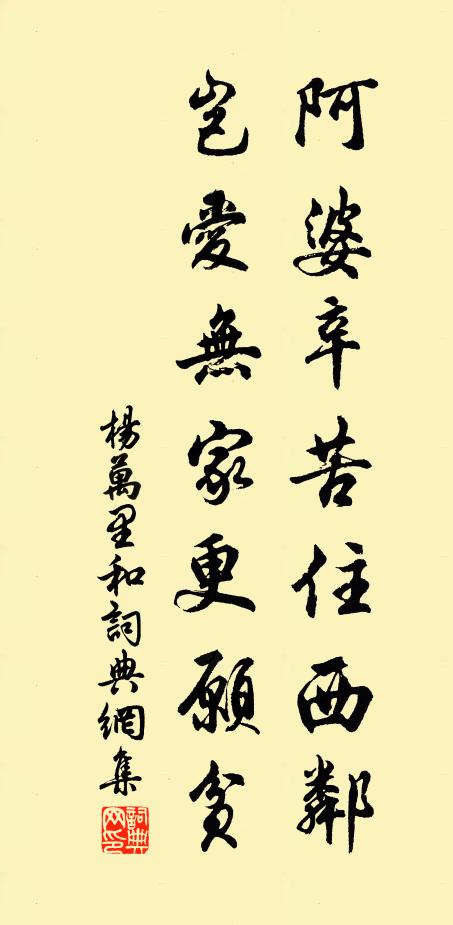 阿婆辛苦住西鄰
豈愛無家更願貧
楊萬里和詞典網集
詞典網印